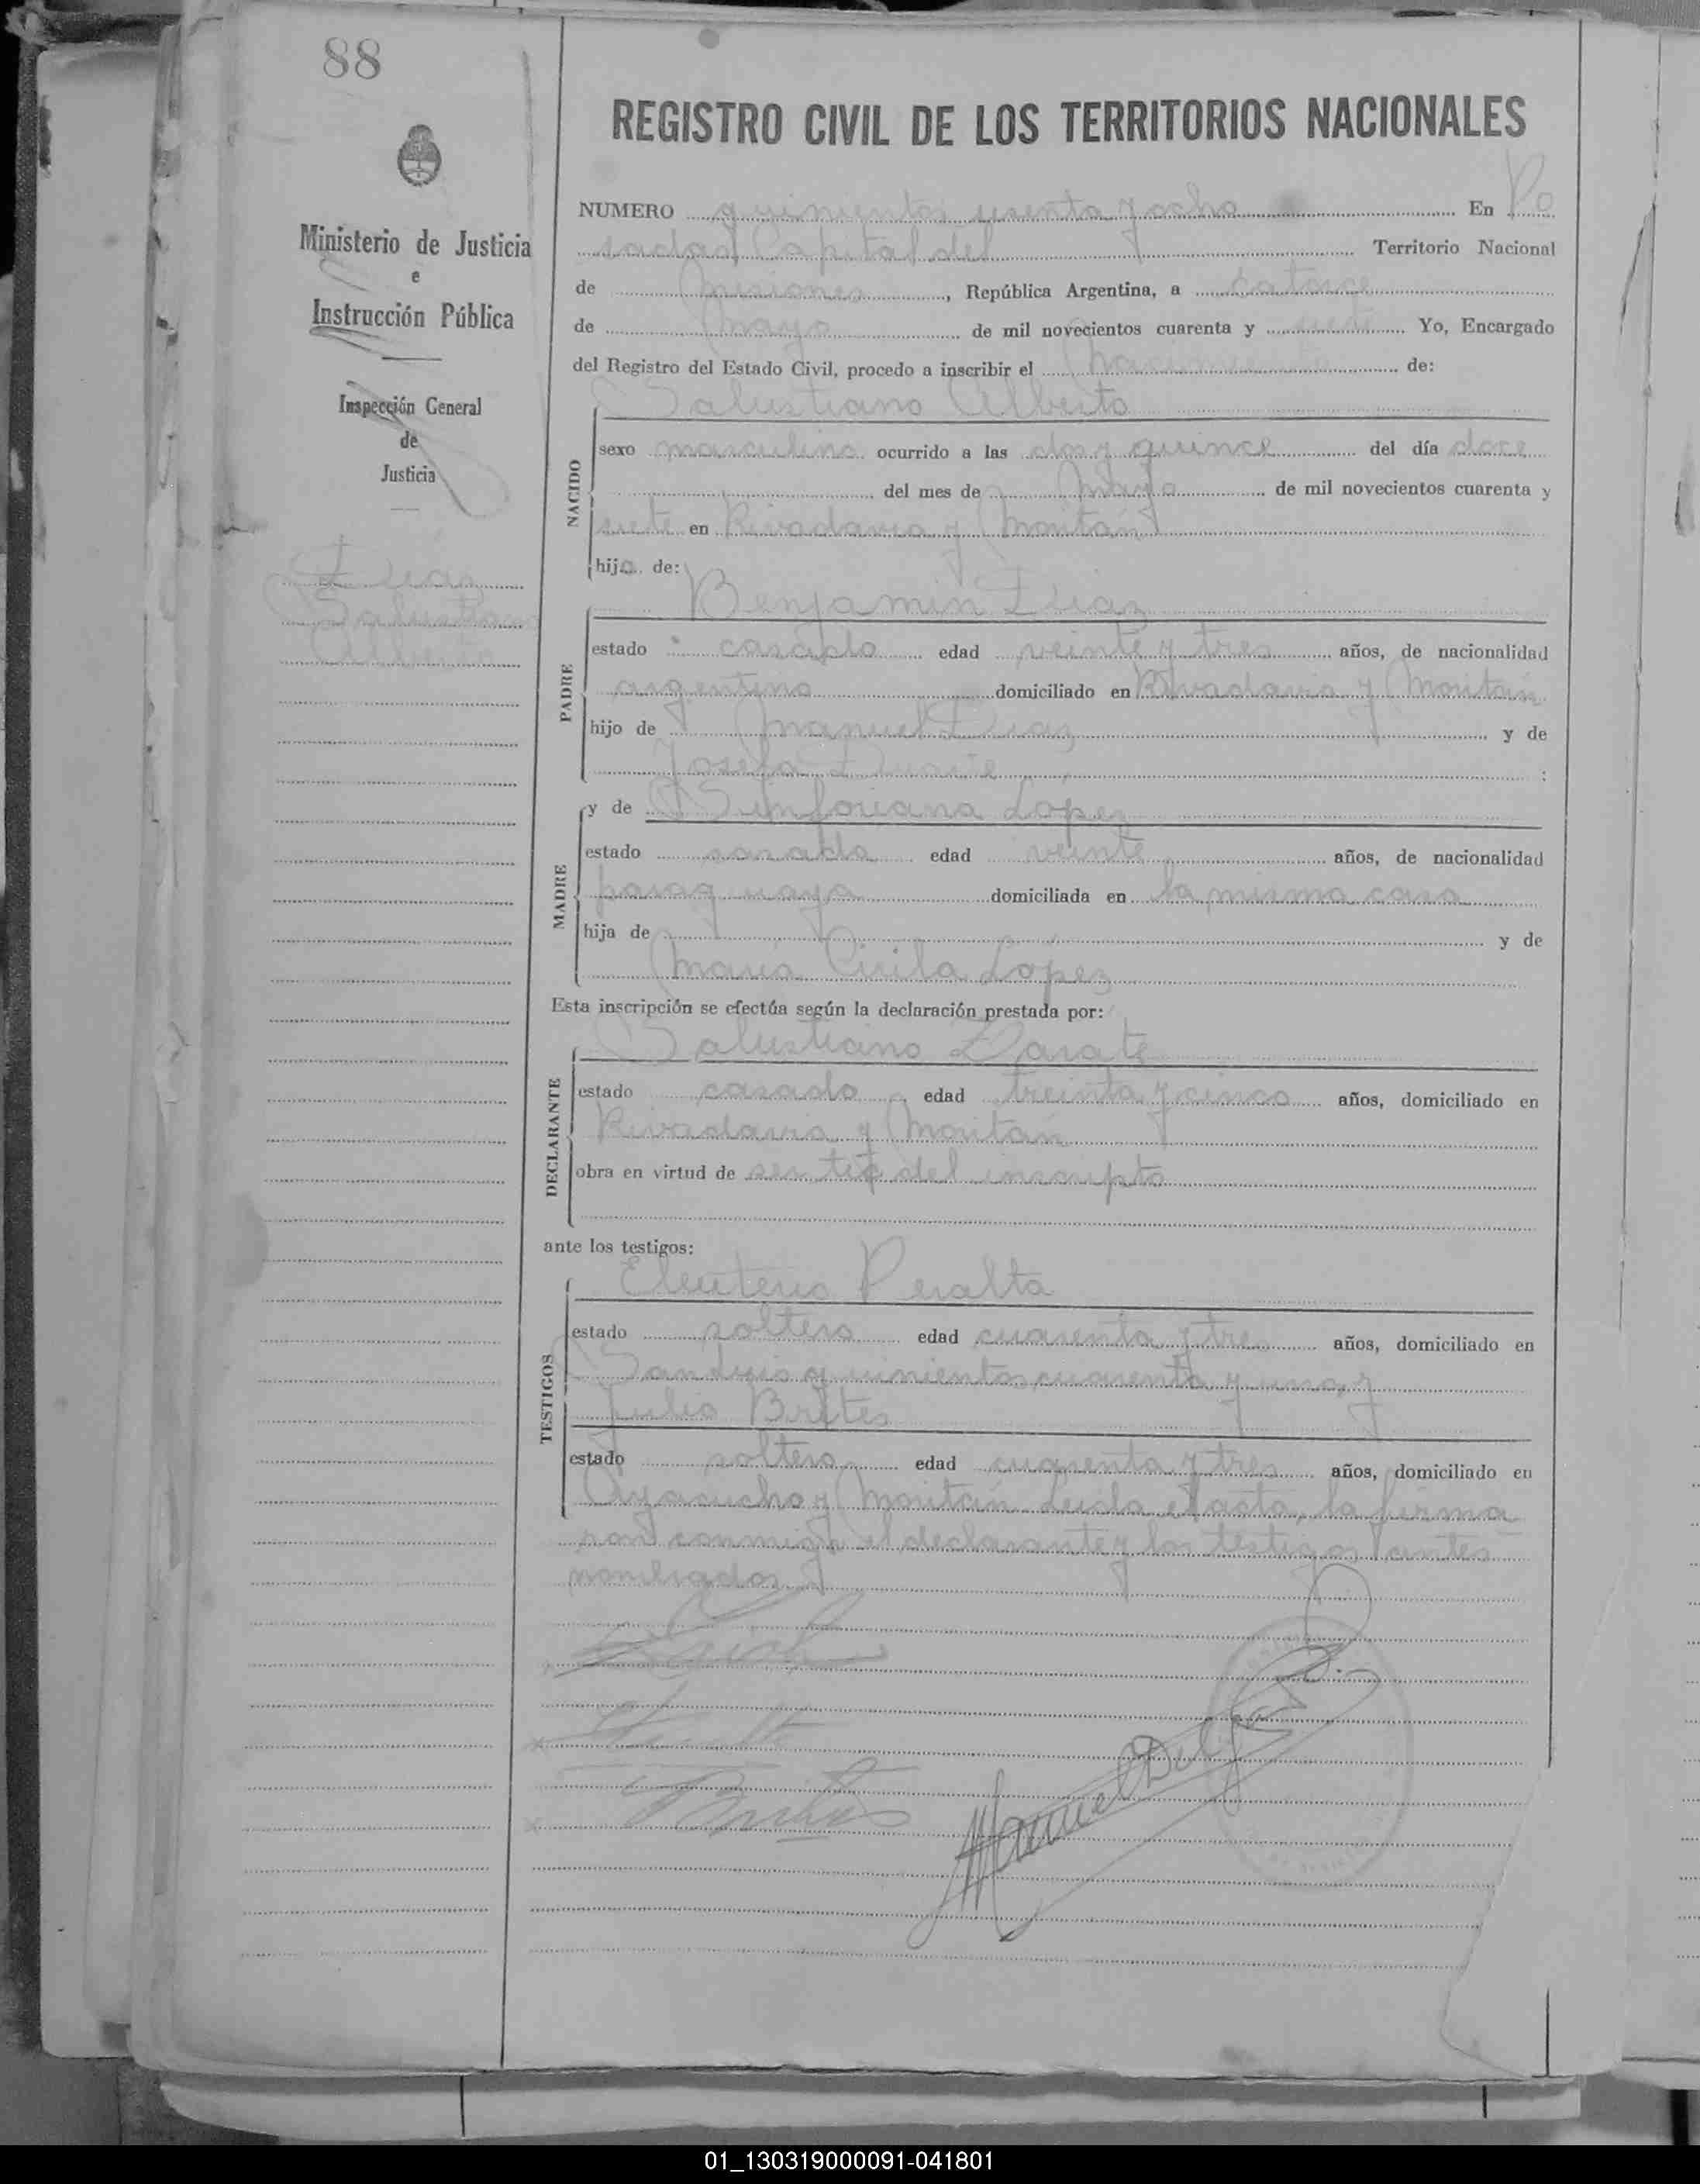 88
REGISTRO CIVIL DE LOS TERRITORIOS NACIONALES
Ministerio de Justicia
e
Instrucción Pública
Inspección General
de
Justicia
Diaz
Salustiano
Alberto
NUMERO quinientos y ocho En Po
sadas Capital del Territorio Nacional
de Misiones, República Argentina, a catorce
de Mayo de mil novecientos cuarenta y siete Yo, Encargado
del Registro del Estado Civil, procedo a inscribir el Nacimiento de:
Salustiano Alberto
NACIDO
sexo masculino ocurrido a las dos y quince del día doce
del mes de Mayo de mil novecientos cuarenta y
siete en Rivadavia y Moritán
hijo de:
Benjamin Diaz
PADRE
estado casado edad veinte y tres años, de nacionalidad
argentino domiciliado en Rivadavia y Moritán
hijo de Manuel Diaz y de
Josefa Duarte :
MADRE
y de Sinforiana Lopez
estado casada edad veinte años, de nacionalidad
paraguaya domiciliada en la misma casa
hija de y de
Maria Cirila Lopez
Esta inscripción se efectúa según la declaración prestada por:
Salustiano Zarate
DECLARANTE
estado casado edad treinta y cinco años, domiciliado en
Rivadavia y Moritán
obra en virtud de ser tio del inscripto
ante los testigos:
Eleuterio Peralta
TESTIGOS
estado soltero edad cuarenta y tres años, domiciliado en
San Luis quinientos cuarenta y uno, y
Julio Brites
estado soltero edad cuarenta y tres años, domiciliado en
Ayacucho y Moritán Leida el acta, la firma
ron conmigo el declarante y los testigos antes
nombrados
Brites
Manuel
01_130319000091-041801